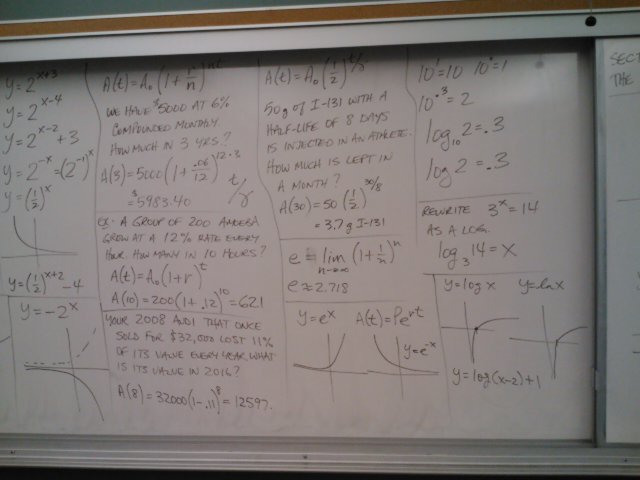 y=2^(x+3)
y=2^(x-4)
y=2^(x-2)+3
y=2^(-x)=(2^(-1))^x
y=(1/2)^x
y=(1/2)^(x+2)-4
y=-2^x
A(t)=A₀(1+r/n)^(nt)
WE HAVE $5000 AT 6%
COMPOUNDED MONTHLY.
HOW MUCH IN 3 YRS?
A(3)=5000(1+.06/12)^(12·3)
=$5983.40
t/r
EX: A GROUP OF 200 AMOEBA
GROW AT A 12% RATE EVERY
HOUR. HOW MANY IN 10 HOURS?
A(t)=A₀(1+r)^t
A(10)=200(1+.12)^10=621
YOUR 2008 AUDI THAT ONCE
SOLD FOR $32,000 LOST 11%
OF ITS VALUE EVERY YEAR. WHAT
IS ITS VALUE IN 2016?
A(8)=32000(1-.11)^8=12597.
A(t)=A₀(1/2)^(t/r)
50g OF I-131 WITH A
HALF-LIFE OF 8 DAYS
IS INJECTED IN AN ATHLETE.
HOW MUCH IS LEFT IN
A MONTH?
A(30)=50(1/2)^(30/8)
=3.7g I-131
e=lim n→∞ (1+1/n)^n
e≈2.718
y=e^x A(t)=Pe^(rt)
y=e^(-x)
10^1=10 10^0=1
10^.3=2
log₁₀2=.3
log 2=.3
REWRITE 3^x=14
AS A LOG.
log₃14=x
y=log x y=ln x
y=log(x-2)+1
SECT
THE